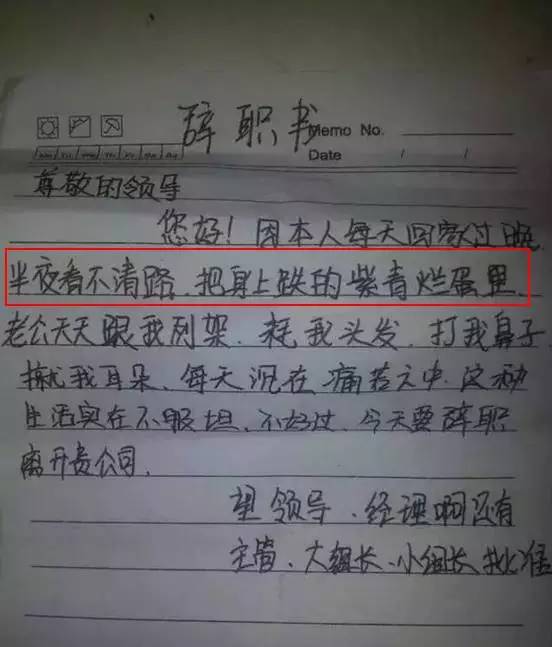 辞职书
Memo No.
Date / /
尊敬的领导
您好！因本人每天回家过晚
半夜看不清路、把身上跌的紫青烂蛋里、
老公天天跟我列架、耗我头发、打我鼻子
揪我耳朵、每天沉在痛苦之中、这种
生活实在不服坦、不好过、今天要辞职
离开贵公司．
望领导、经理啊还有
主管、大组长、小组长批准